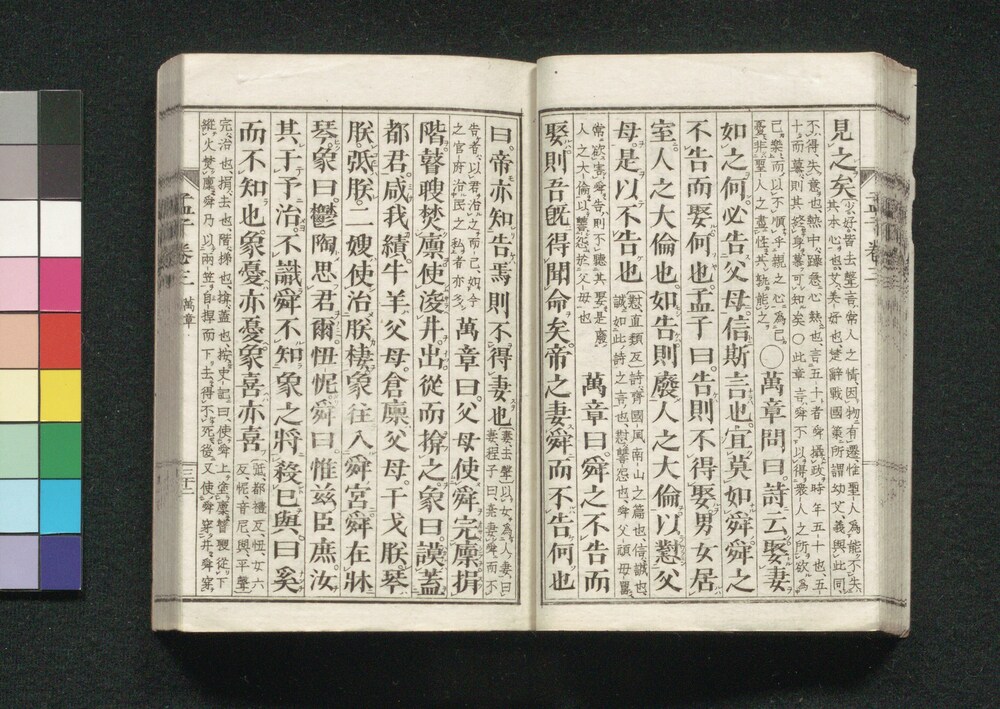 見之矣少好皆去聲言常人之情因物有遷惟聖人為能不失
其本心也艾美好也楚辭戰國策所謂幼艾義與此同
不得失意也熱中躁急心熱也言五十者舜攝政時年五十也五
十而慕則其終身慕可知矣〇此章言舜不以得衆人之所欲為
己樂而以不順乎親之心為己
憂非聖人之盡性其孰能之〇萬章問曰詩云娶妻
如之何必告父母信斯言也宜莫如舜舜之
不告而娶何也孟子曰告則不得娶男女居
室人之大倫也如告則廢人之大倫以懟父
母是以不告也懟直類反詩齊國風南山之篇也信誠也
誠如此詩之言也懟讎怨也舜父頑母嚚
常欲害舜告則不聽其娶是廢
人之大倫以讎怨於父母也萬章曰舜之不告而
娶則吾旣得聞命矣帝之妻舜而不告何也
曰帝亦知告焉則不得妻也妻去聲〇以女為人妻曰
妻程子曰堯妻舜而不
告者以君治之而已如今
之官府治民之私者亦多萬章曰父母使舜完廩捐
階瞽瞍焚廩使浚井出從而揜之象曰謨蓋
都君咸我績牛羊父母倉廩父母干戈朕琴
朕弤朕二嫂使治朕棲象往入舜宮舜在牀
琴象曰鬱陶思君爾忸怩舜曰惟茲臣庶汝
其于予治不識舜不知象之將殺己與曰奚
而不知也象憂亦憂象喜亦喜弤都禮反忸女六
反怩音尼與平聲
完治也捐去也階梯也揜蓋也按史記曰使舜上塗廩瞽瞍從下
縱火焚廩舜乃以兩笠自捍而下去得不死後又使舜穿井舜穿
孟子卷三
孟子卷三 萬章
三十二